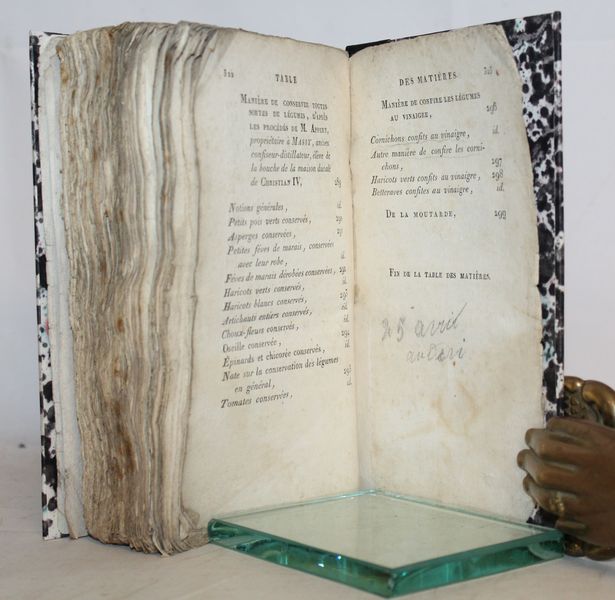 322 TABLE
MANIÈRE DE CONSERVER TOUTES
SORTES DE LÉGUMES, D'APRÈS
LES PROCÉDÉS DE M. APPERT,
propriétaire à MASSY, ancien
confiseur-distillateur, élève de
la bouche de la maison ducale
de CHRISTIAN IV, 289
Notions générales, id.
Petits pois verts conservés,
Asperges conservées,
Petites fèves de marais, conservées
avec leur robe, id.
Fèves de marais dérobées conservées,
Haricots verts conservés, id.
Haricots blancs conservés,
Artichauts entiers conservés, id.
Choux-fleurs conservés, id.
Oseille conservée,
Épinards et chicorée conservés, id.
Note sur la conservation des légumes
en général,
Tomates conservées, id.
DES MATIÈRES. 323
MANIÈRE DE CONFIRE LES LÉGUMES
AU VINAIGRE, 296
Cornichons confits au vinaigre, id.
Autre manière de confire les corni-
chons, 297
Haricots verts confits au vinaigre, 298
Betteraves confites au vinaigre, id.
DE LA MOUTARDE, 299
FIN DE LA TABLE DES MATIÈRES.
25 avril